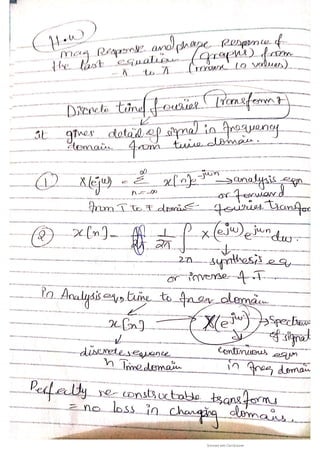 H.W
Mag Response and phase Response of
the last equation (graphs) from
-π to π (mown 10 values).
Discrete time fourier Transform ?
it gives detail of signal in frequency
domain from time domain.
① X(ejω) = ∞Σn=-∞ x[n]e-jωn → analysis eqn
or forward
from T to F domain fourier Transfor
② x[n] = 1/2π ∫2π X(ejω) ejωn dω.
synthesis eq
or inverse F.T.
In Analysis eq, time to freq domain
x[n] X(ejω) → Spectrum
of signal
discrete sequence continuous eqn
n Time domain in freq, domain
Perfectly re-constructable transforms
= no loss in changing domains.
Scanned with CamScanner